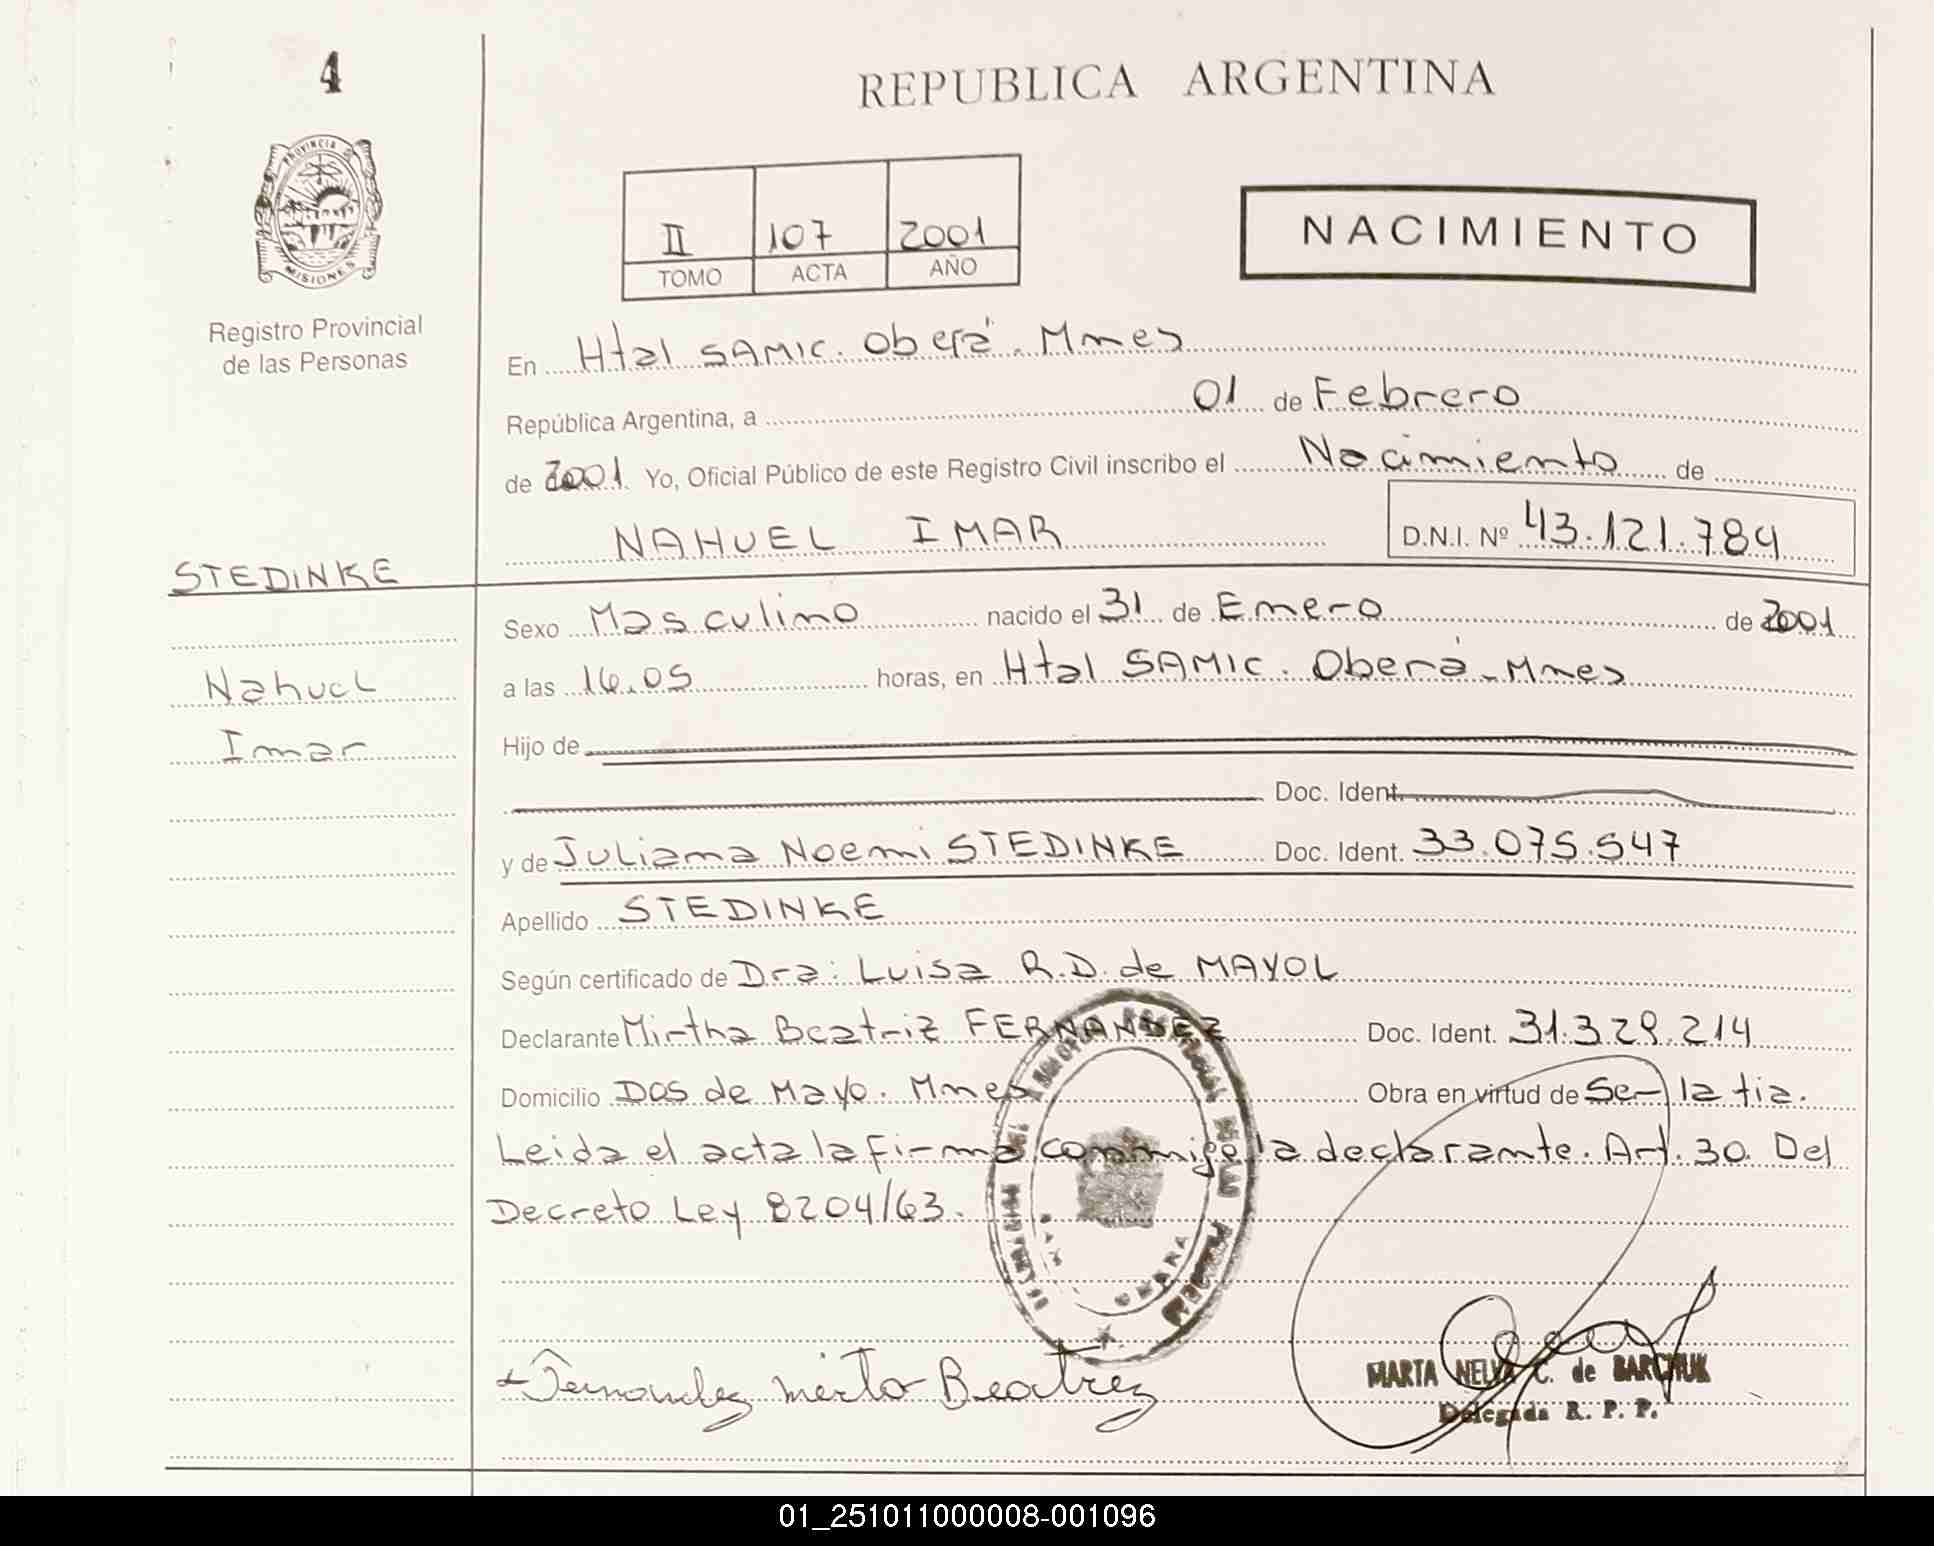 4
REPUBLICA ARGENTINA
PROVINCIA DE
MISIONES
Registro Provincial
de las Personas
II 107 2001
TOMO ACTA AÑO
NACIMIENTO
En Htal SAMIC. Oberá. Mnes
República Argentina, a 01 de Febrero
de 2001 Yo, Oficial Público de este Registro Civil inscribo el Nacimiento de
NAHUEL IMAR D.N.I. Nº 43.121.784
STEDINKE
Sexo Masculino nacido el 31 de Enero de 2001
Nahuel
a las 16.05 horas, en Htal SAMIC. Oberá. Mnes
Imar
Hijo de
Doc. Ident.
y de Juliana Noemi STEDINKE Doc. Ident. 33.075.547
Apellido STEDINKE
Según certificado de Dra: Luisa R.D. de MAYOL
Declarante Mirtha Beatriz FERNANDEZ Doc. Ident. 31.329.214
Domicilio Dos de Mayo. Mnes Obra en virtud de Ser la tia.
Leida el acta la firma conmigo la declarante. Art. 30. Del
Decreto Ley 8204/63.
Fernandez mirta Beatrez
MARTA NELYA C. de BARCHUK
Delegada R. P. P.
01_251011000008-001096